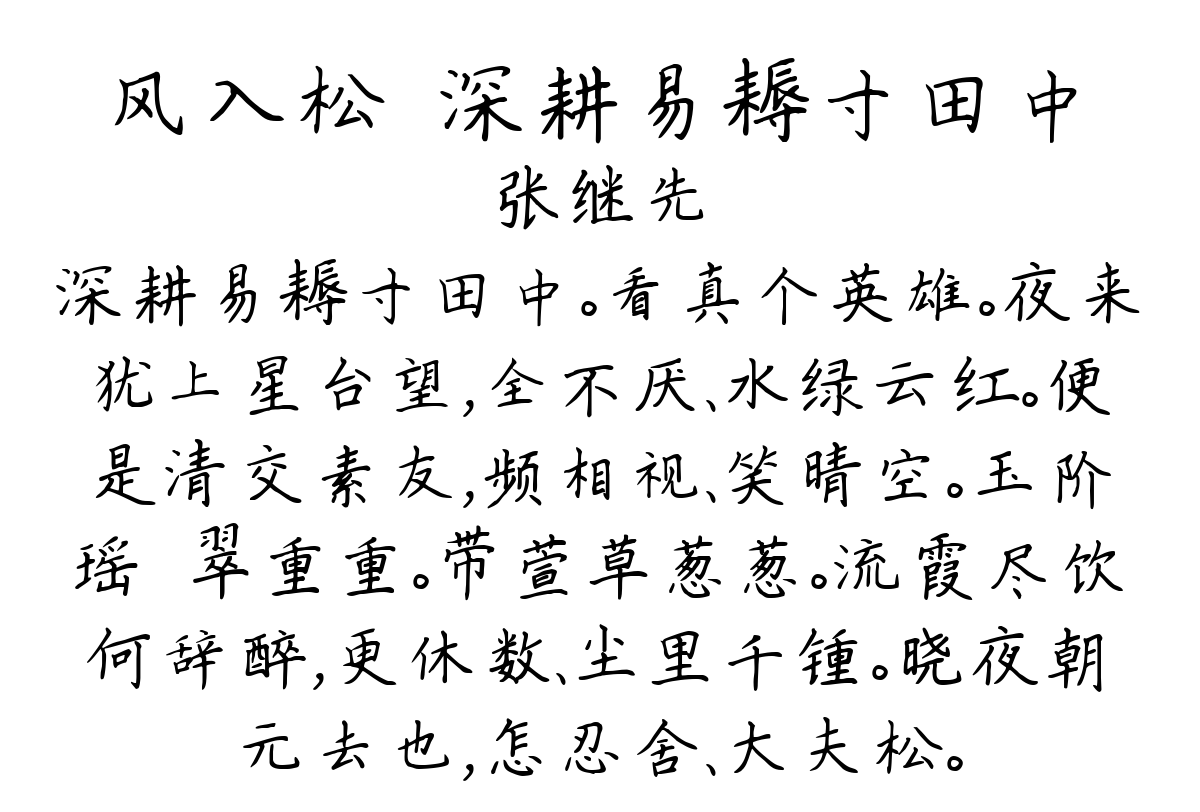 风入松 深耕易耨寸田中
张继先
深耕易耨寸田中。看真个英雄。夜来
犹上星台望,全不厌、水绿云红。便
是清交素友,频相视、笑晴空。玉阶
瑶 翠重重。带萱草葱葱。流霞尽饮
何辞醉,更休数、尘里千锺。晓夜朝
元去也,怎忍舍、大夫松。